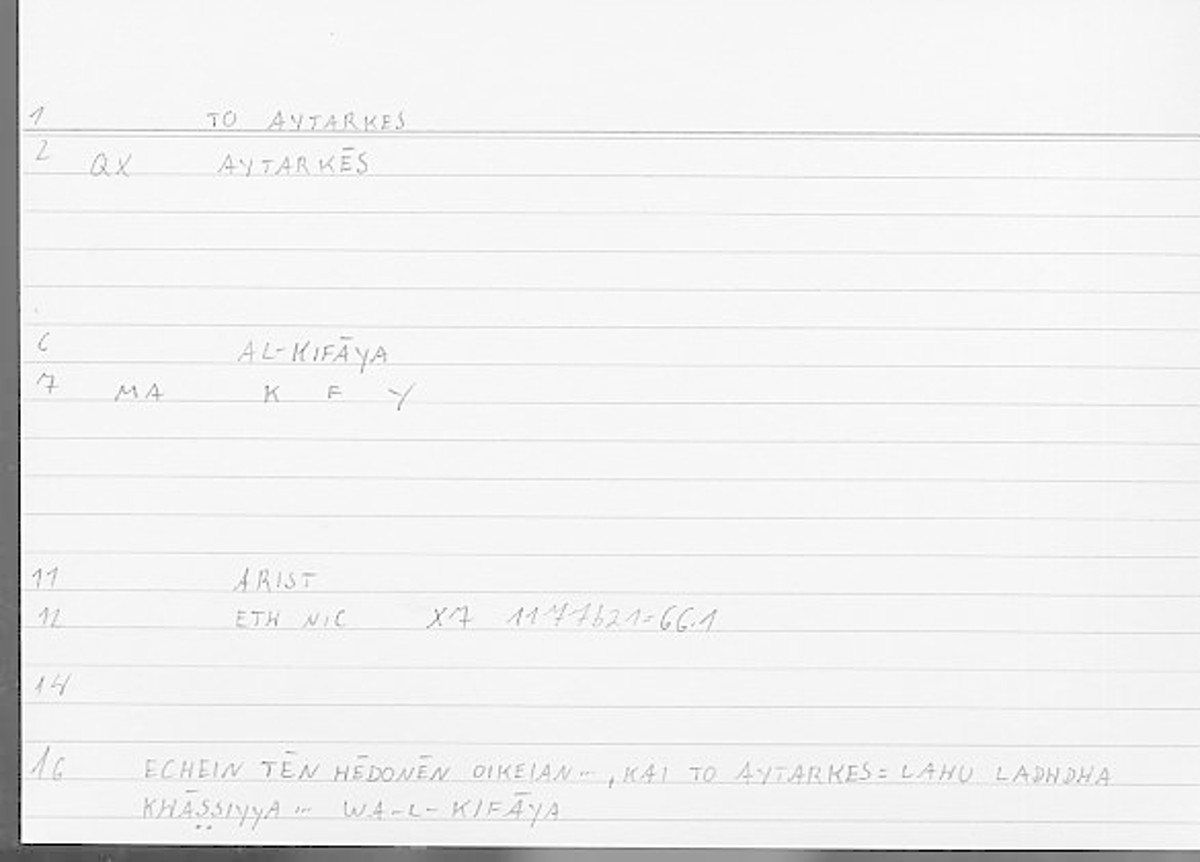 1 TO AYTARKES
2 QX AYTARKĒS
6 AL-KIFĀYA
7 MA K F Y
11 ARIST
12 ETH NIC X7 1177b21=66.1
14
16 ECHEIN TĒN HĒDONĒN OIKEIAN..., KAI TO AYTARKES = LAHU LADHDHA
KHĀṢṢIYYA ... WA-L-KIFĀYA